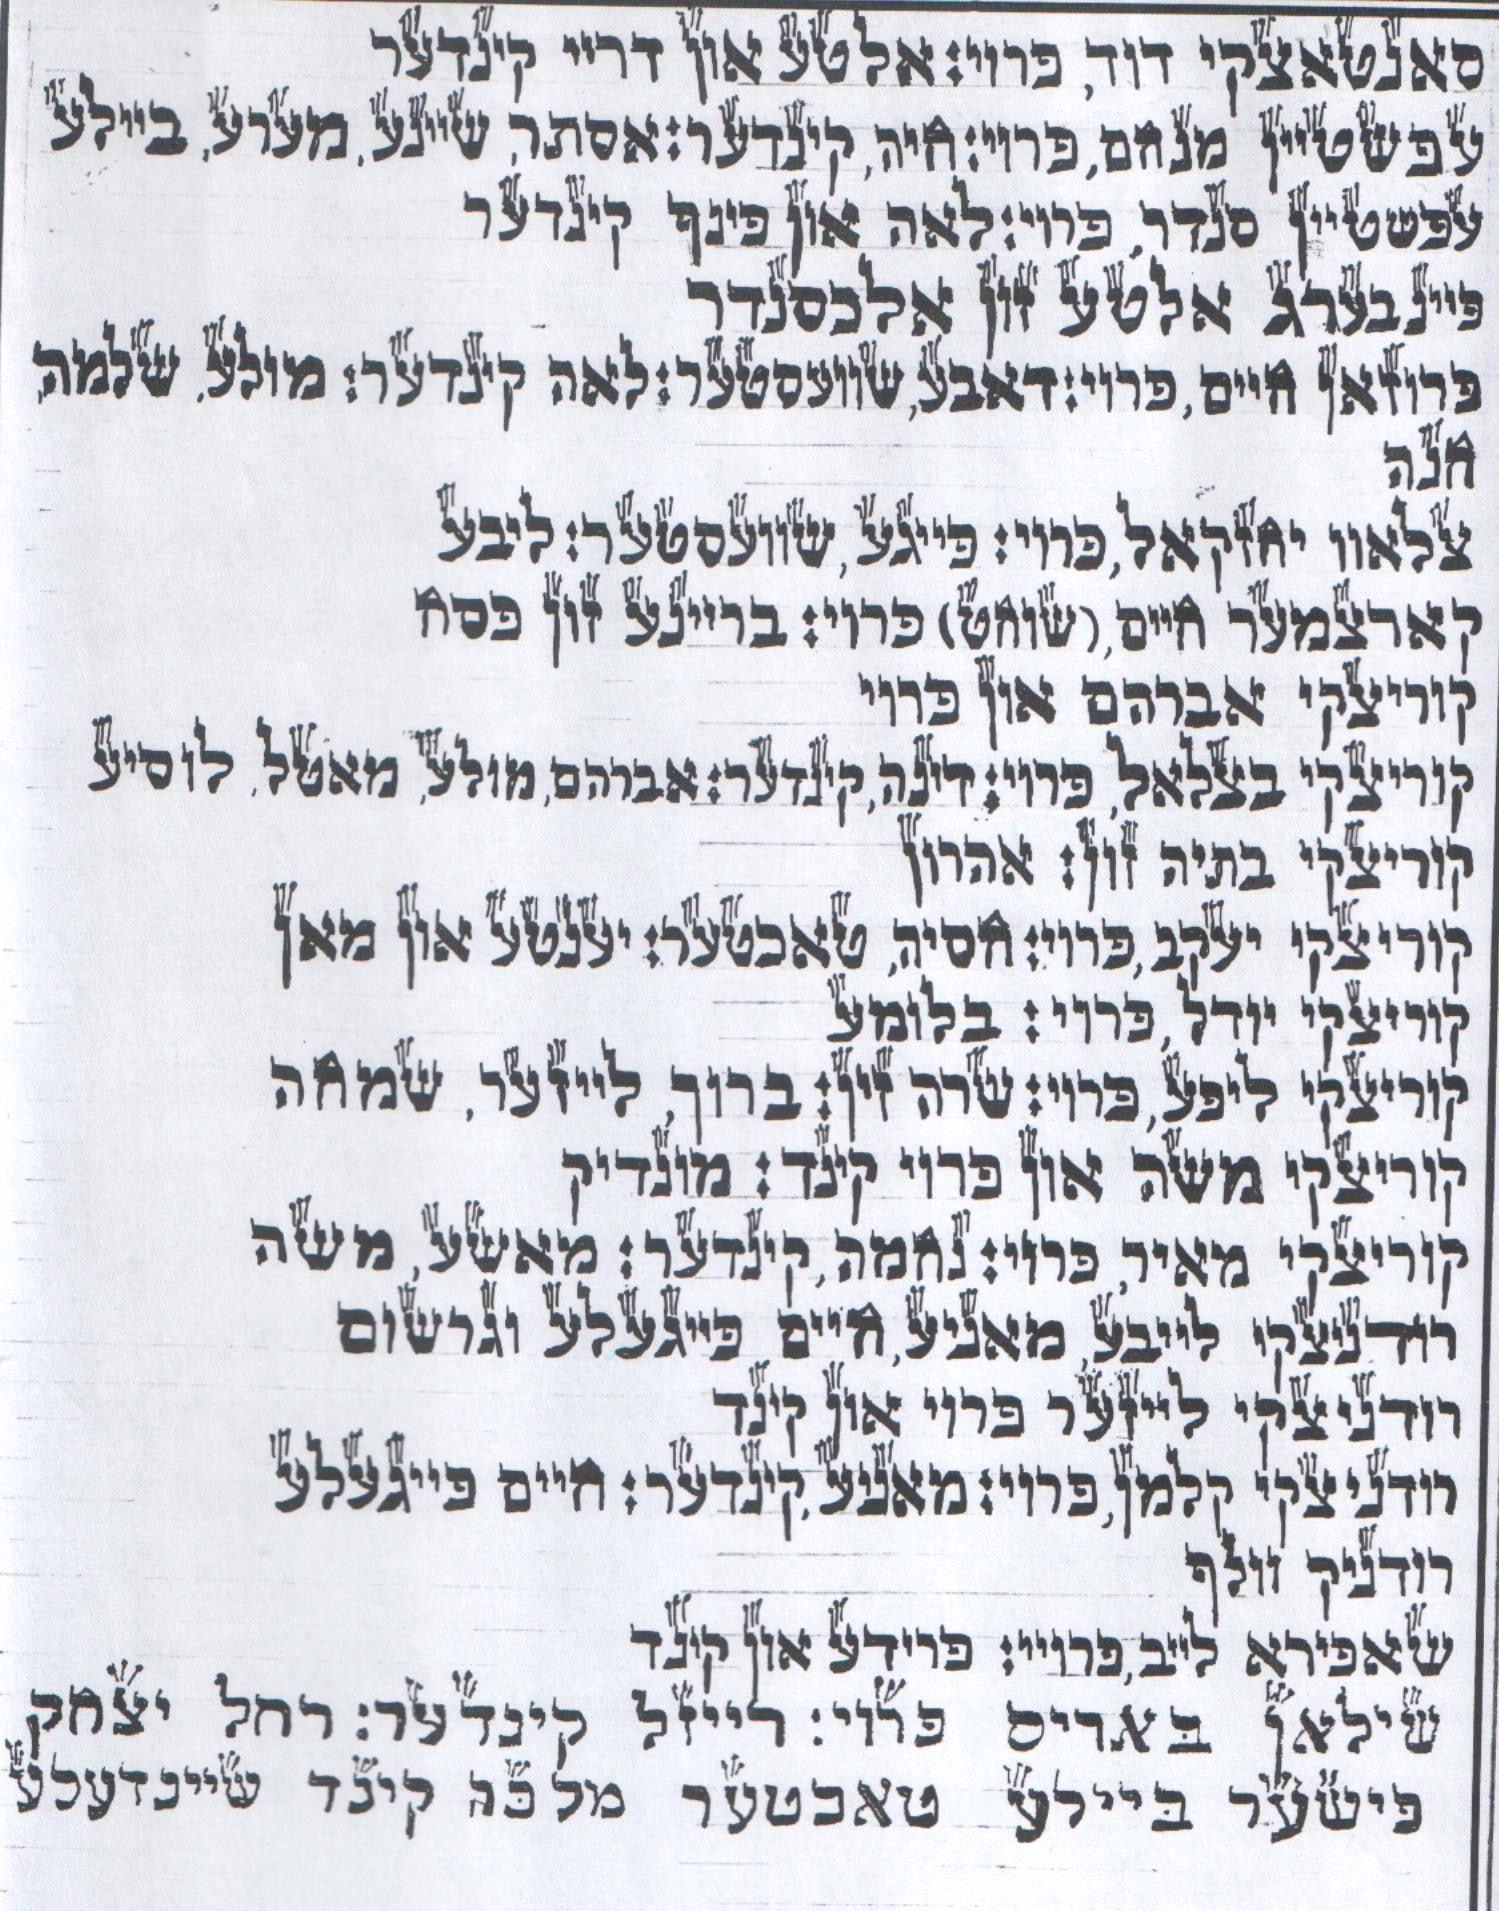 סאנטאצקי דוד, פרוי: אלטע און דריי קינדער
עפשטיין מנחם, פרוי: חיה, קינדער: אסתר, שיינע, מערע, ביילע
עפשטיין סנדר, פרוי: לאה און פינף קינדער
פיינבערג אלטע זון אלכסנדר
פרוזאן חיים, פרוי: דאבע, שוועסטער: לאה קינדער: מולע, שלמה,
חנה
צלאוו יחזקאל, פרוי: פייגע, שוועסטער: ליבע
קארצמער חיים, (שוחט) פרוי: בריינע זון פסח
קוריצקי אברהם און פרוי
קוריצקי בצלאל, פרוי: דינה, קינדער: אברהם, מולע, מאטל, לוסיע
קוריצקי בתיה זון: אהרון
קוריצקי יעקב, פרוי: חסיה, טאכטער: יענטע און מאן
קוריצקי יודל, פרוי: בלומע
קוריצקי ליפע, פרוי: שרה זין: ברוך, לייזער, שמחה
קוריצקי משה און פרוי קינד: מונדיק
קוריצקי מאיר, פרוי: נחמה, קינדער: מאשע, משה
רודניצקי לייבע, מאניע, חיים פייגעלע וגרשום
רודניצקי לייזער פרוי און קינד
רודניצקי קלמן, פרוי: מאניע, קינדער: חיים פייגעלע
רודניק וולף
שאפירא לייב, פרויי: פרידע און קינד
שילאן באריס פרוי: רייזל קינדער: רחל יצחק
פישער ביילע טאכטער מלכה קינד שיינדעלע